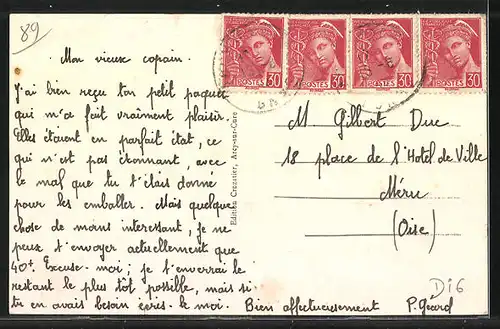 89
Mon vieux copain.
J'ai bien reçu ton petit paquet
qui m'a fait vraiment plaisir.
Elles étaient en parfait état, ce
qui n'est pas étonnant avec
le mal que tu t'étais donné
pour les emballer. Mais quelque
chose de moins interessant, je ne
peux t'envoyer actuellement que
40f. Excuse-moi; je t'enverrai le
restant le plus tôt possible, mais si
tu en avais besoin écris-le moi. Bien affectueusement P. Géard
Edition Crozatier, Arcy-sur-Cure
POSTES 30
POSTES 30
POSTES 30
POSTES 30
M. Gilbert Duc
18 place de l'Hotel de Ville
Méru
(Oise)
D16